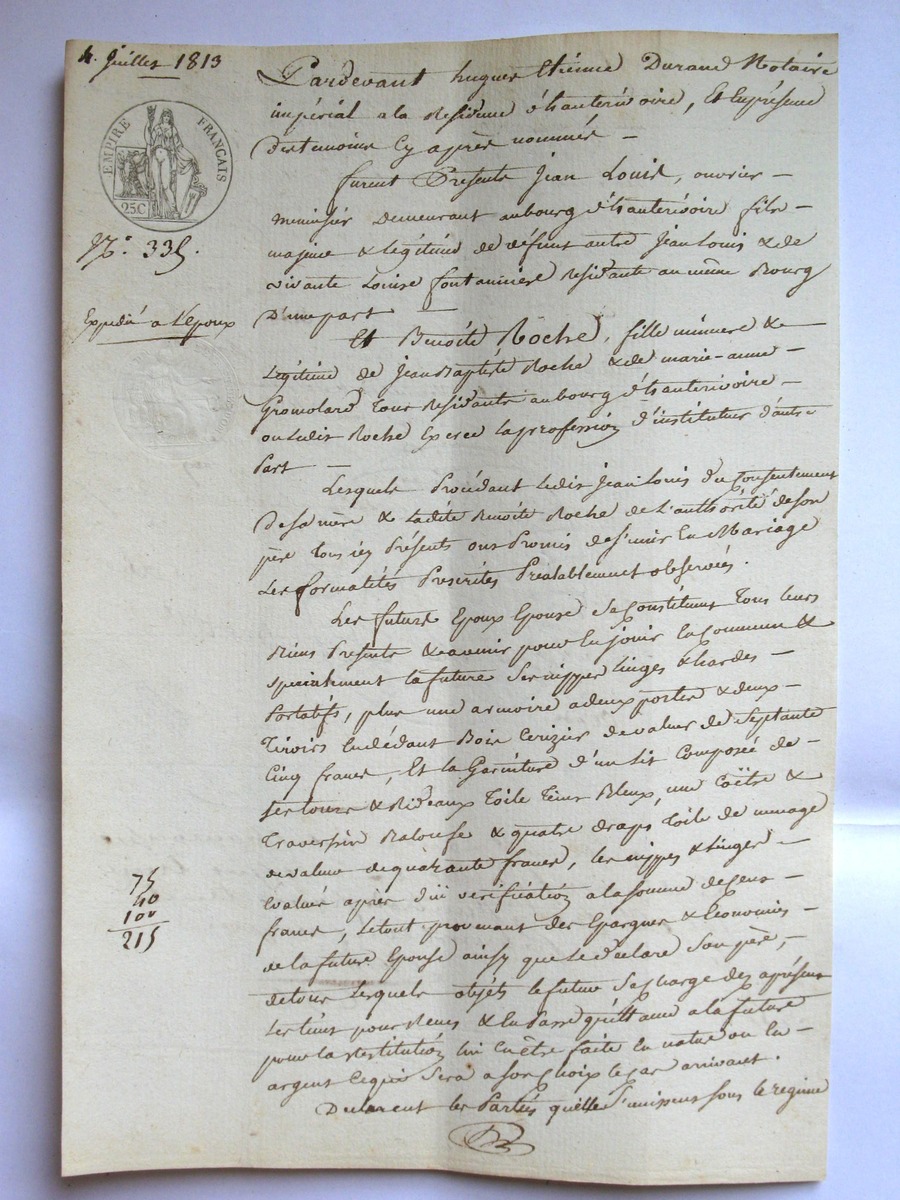 4. Juillet 1813
EMPIRE FRANÇAIS
25C
N.° 335.
Expedié a L'epoux
Pardevant hugues Etienne Durand Notaire
impérial a la Residence d'hauterivoire, Et En présence
Des temoins Cy après nommés —
furent Présents Jean Louis, ouvrier —
menuisier Demeurant au bourg d'hauterivoire fils —
majeur & Légitime de défunt autre Jean Louis & de
vivante Louise fontanniere Residante au même Bourg
D'une part —
Et Benoîte Roche, fille mineure &
Légitime de Jean Baptiste Roche & de marie-anne —
Gromolard Tous Residants au bourg d'hauterivoire —
ou Ledit Roche Exerce la profession d'instituteur d'autre
Part —
Lesquels Procédant Ledit Jean Louis du Consentement
De sa mère & Ladite Benoite Roche de L'authorité de son
père Tous icy Présents ont Promis de s'unir En Mariage
Les formalités Prescrites Préalablement observées.
Les futurs Epoux Epouse Se Constituent Tous leurs
Biens Présents & avenir pour En jouir En Commun &
specialement la future Ses nippes linges & hardes —
Portatifs, plus une armoire a deux portes & deux —
Tiroirs En dédant Bois Cerizier de valeur de Septante
Cinq francs, Et la Garniture d'un Lit Composée de —
ses tours & Rideaux Toile Teint Bleux, une Coëtre &
Traversin Balouse & quatre draps Toile de menage
de valeur de quarante francs, les nippes & linges —
Evalués après dûe vérification a la somme de Cent —
francs, Le tout provenant des Epargnes & Economies —
de la future Epouse ainsy que Le déclare Son père, —
de tous Lesquels objets le futur Se Charge dez aprésent
Les tient pour Reçus & En Passe quittance a la future
pour la restitution lui En être faite En nature ou En —
argent Ce qui Sera a Son Choix le Cas arrivant.
Declarent les Parties qu'elles S'unissent sous le regime
75
40
100
215